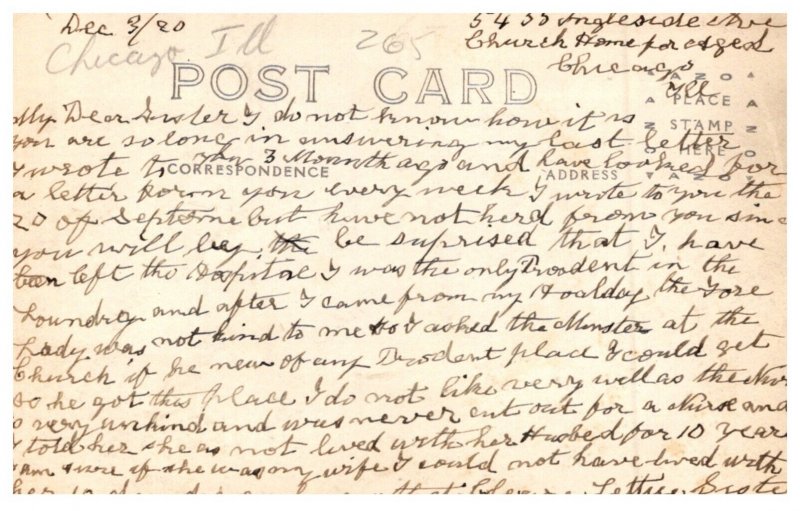 Dec 3/20
5455 Ingleside Ave
Church Home for Aged
Chicago
Ill
Chicago Ill 265
POST CARD
AZO
PLACE
STAMP
HERE
AZO
CORRESPONDENCE
ADDRESS
My Dear Sister I do not know how it is
you are so long in answering my last letter
I wrote to you 3 Mounth ago and have looked for
a letter from you every week I wrote to you the
20 of Septeme but have not herd from you sinc
you will be suprised that I have
left the Hospitae I was the only Prodent in the
Loundrey and after I came from my Hoalday the Fore
Lady was not kind to me so I asked the Minster at the
Church if he new of any Prodent place I could get
so he got this place I do not like very well as the Nur
very unkind and was never cut out for a Nurse and
I told her she as not lived with her Husbed for 10 year
I am sure if she was my wife I could not have lived with
her 10